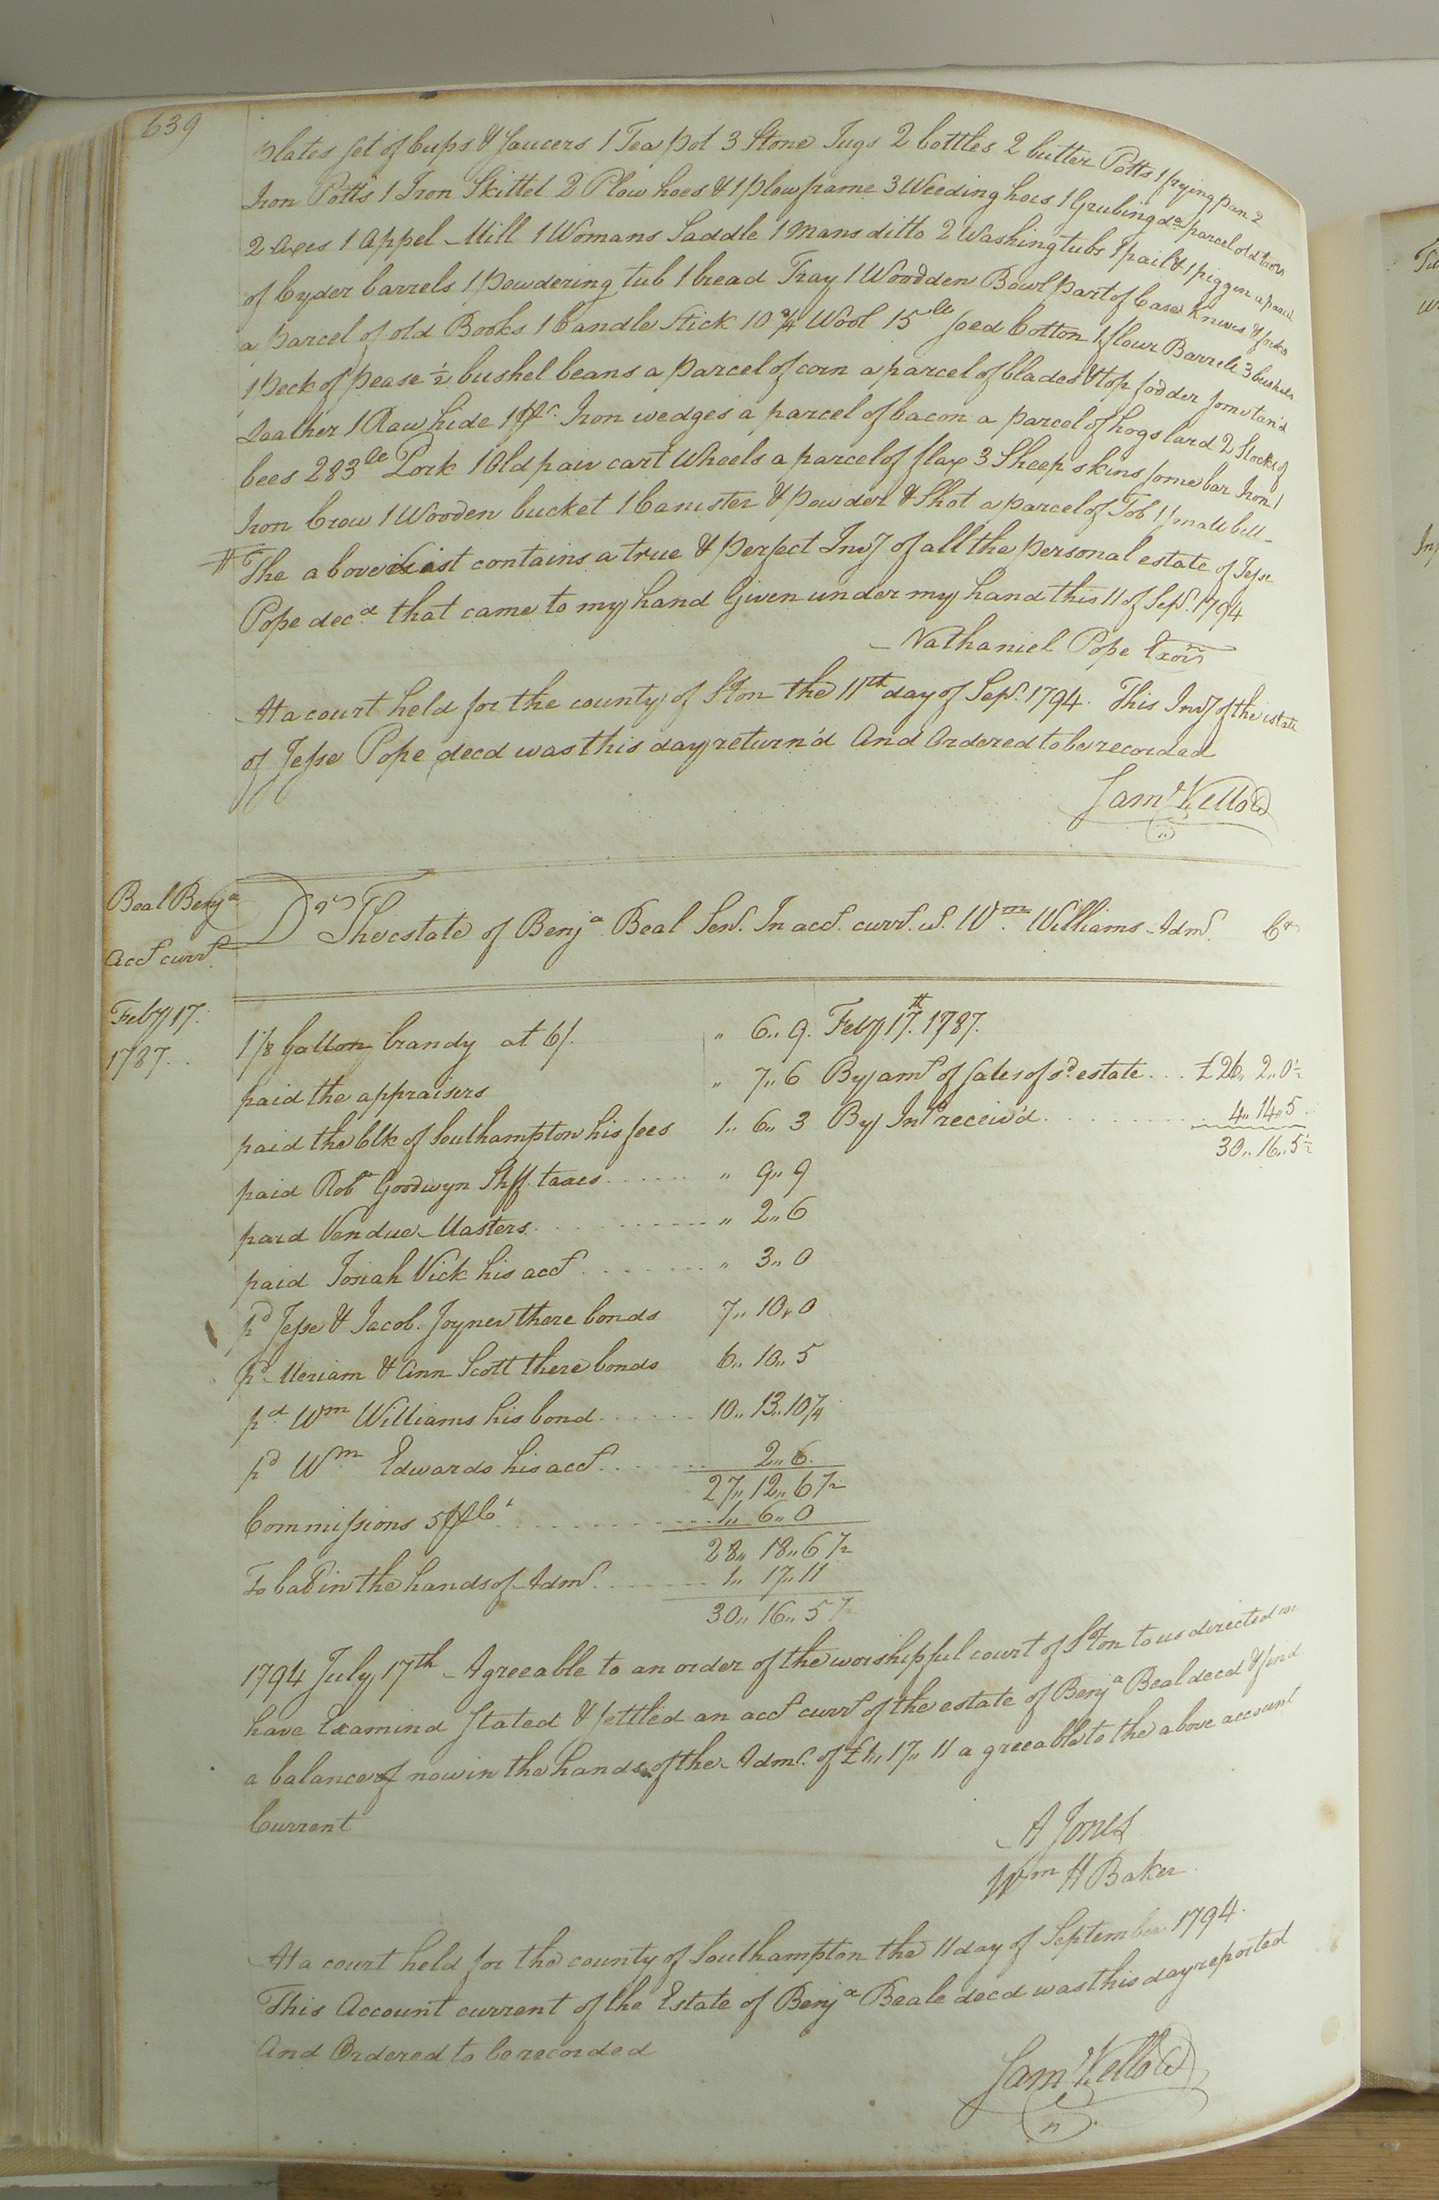 639
plates set of Cups & saucers 1 Tea pot 3 Stone Jugs 2 bottles 2 butter Potts 1 frying pan 2
Iron Potts 1 Iron Skittel 2 Plow hoes & 1 plow frame 3 Weeding hoes 1 Grubing do parcel old
2 axes 1 Appel Mill 1 Womans Saddle 1 Mans ditto 2 Washing tubs 1 pail & 1 piggen a parcel
of Cyder barrels 1 powdering tub 1 bread Tray 1 Woodden Bowl part of Case Knives & forks
a parcel of old Books 1 Candle Stick 10 ¾ Wool 15 lb seed Cotton 1 flour Barrell 3 bushels
1 Peck of pease ½ bushel beans a parcel of corn a parcel of blades & top fodder some tan'd
Leather 1 Raw hide 1 pr Iron wedges a parcel of bacon a parcel of hogs lard 2 Stocks of
bees 283 lb Pork 1 Old pair cart Wheels a parcel of flax 3 Sheep skins some bar Iron 1
Iron Crow 1 Wooden bucket 1 Canister & powder & Shot a parcel of Tob 1 small bell
The above List contains a true & perfect Invy of all the personal estate of Jesse
Pope decd that came to my hand Given under my hand this 11 of Sept. 1794
Nathaniel Pope Exor
At a court held for the county of Ston the 11th day of Sept. 1794. This Invy of the estate
of Jesse Pope decd was this day return'd And Ordered to be recorded
Saml Kello
Beal Benja
acct currt
Dr The estate of Benja Beal Senr. In acct. currt. wt. Wm Williams Admr. Cr
Feby 17.
1787.
1⅛ Gallon brandy at 6/. " 6 " 9. Feby 17th. 1787.
paid the appraisers " 7 " 6 By amt of sales of sd estate £26 " 2 " 0½
paid the Clk of Southampton his fees 1 " 6 " 3 By Int receiv'd 4 " 14 " 5
30 " 16 " 5½
paid Robt Goodwyn Shff. taxes " 9 " 9
paid Vendue Masters " 2 " 6
paid Josiah Vick his acct " 3 " 0
pd Jesse & Jacob. Joyner there bonds 7 " 10 " 0
pd. Meriam & Ann Scott there bonds 6 " 10 " 5
pd Wm Williams his bond 10 " 13 " 10¼
pd Wm Edwards his acct. 2 " 6.
27 " 12 " 6½
Commissions 5 pr Ct 1 " 6 " 0
28 " 18 " 6½
To bal in the hands of Admr. 1 " 17 " 11
30 " 16 " 5½
1794 July 17th Agreeable to an order of the worshipful court of Ston to us directed we
have Examind Stated & settled an acct currt of the estate of Benja Beal decd & find
a balance of now in the hands of the Admr. of £1 " 17 " 11 agreeable to the above account
Current
A Jones
Wm H Baker
At a court held for the county of Southampton the 11 day of September 1794.
This Account current of the Estate of Benja Beale decd was this day reported
And Ordered to be recorded
Saml Kello